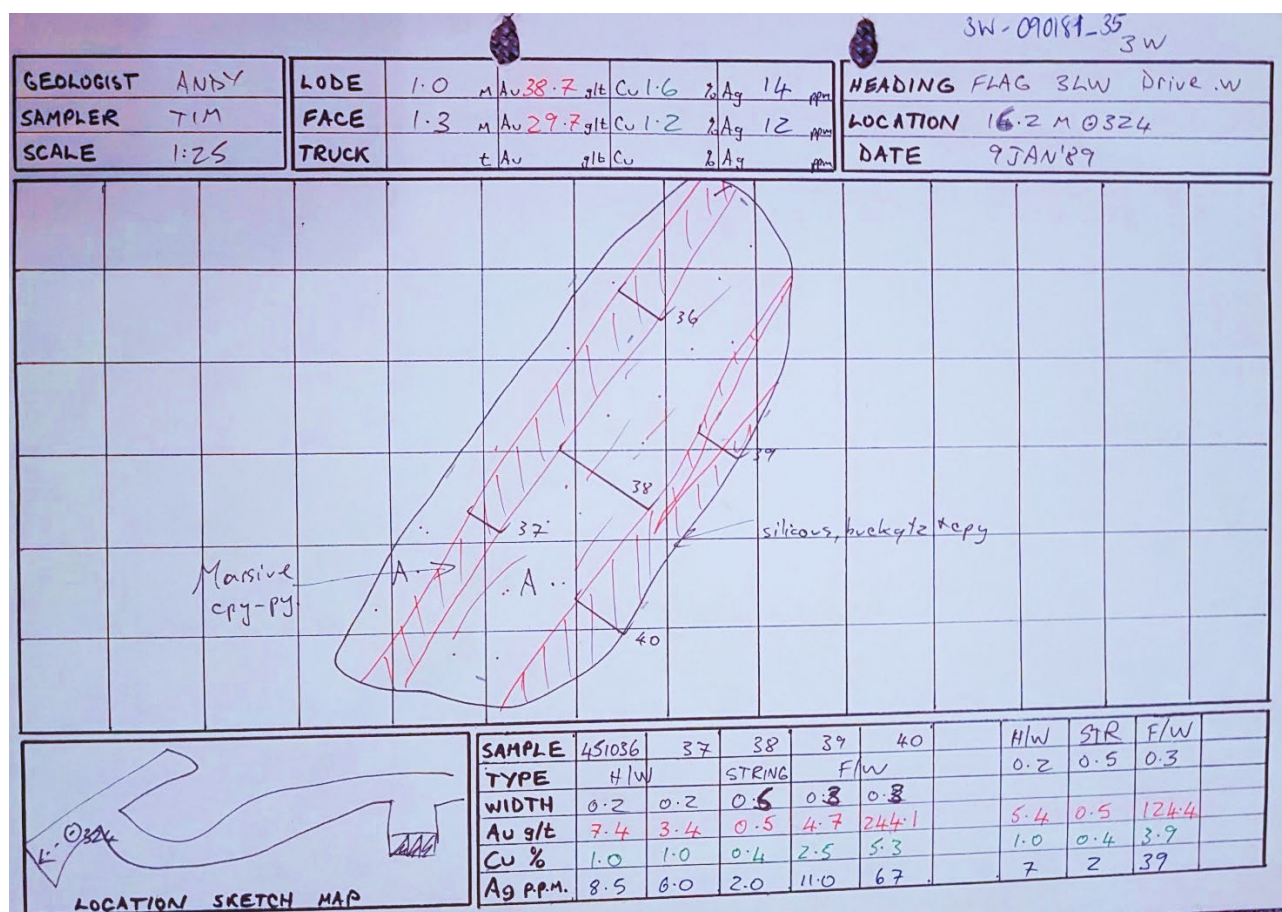 3W-090189_35
3W
GEOLOGIST ANDY
SAMPLER TIM
SCALE 1:25
LODE 1.0 M Au 38.7 g/t Cu 1.6 % Ag 14 ppm
FACE 1.3 M Au 29.7 g/t Cu 1.2 % Ag 12 ppm
TRUCK t Au g/t Cu % Ag ppm
HEADING FLAG 3LW Drive .W
LOCATION 16.2 M @324
DATE 9 JAN '89
36
39
38
37
silicous, buckqtz +cpy
Massive
cpy-py
A
A
40
⊙324
LOCATION SKETCH MAP
SAMPLE 451036 37 38 39 40 H/W STR F/W
TYPE H/W STRING F/W 0.2 0.5 0.3
WIDTH 0.2 0.2
Au g/t 7.4 3.4 0.5 4.7 244.1 5.4 0.5 124.4
Cu % 1.0 1.0 0.4 2.5 5.3 1.0 0.4 3.9
Ag P.P.M. 8.5 6.0 2.0 11.0 67 7 2 39